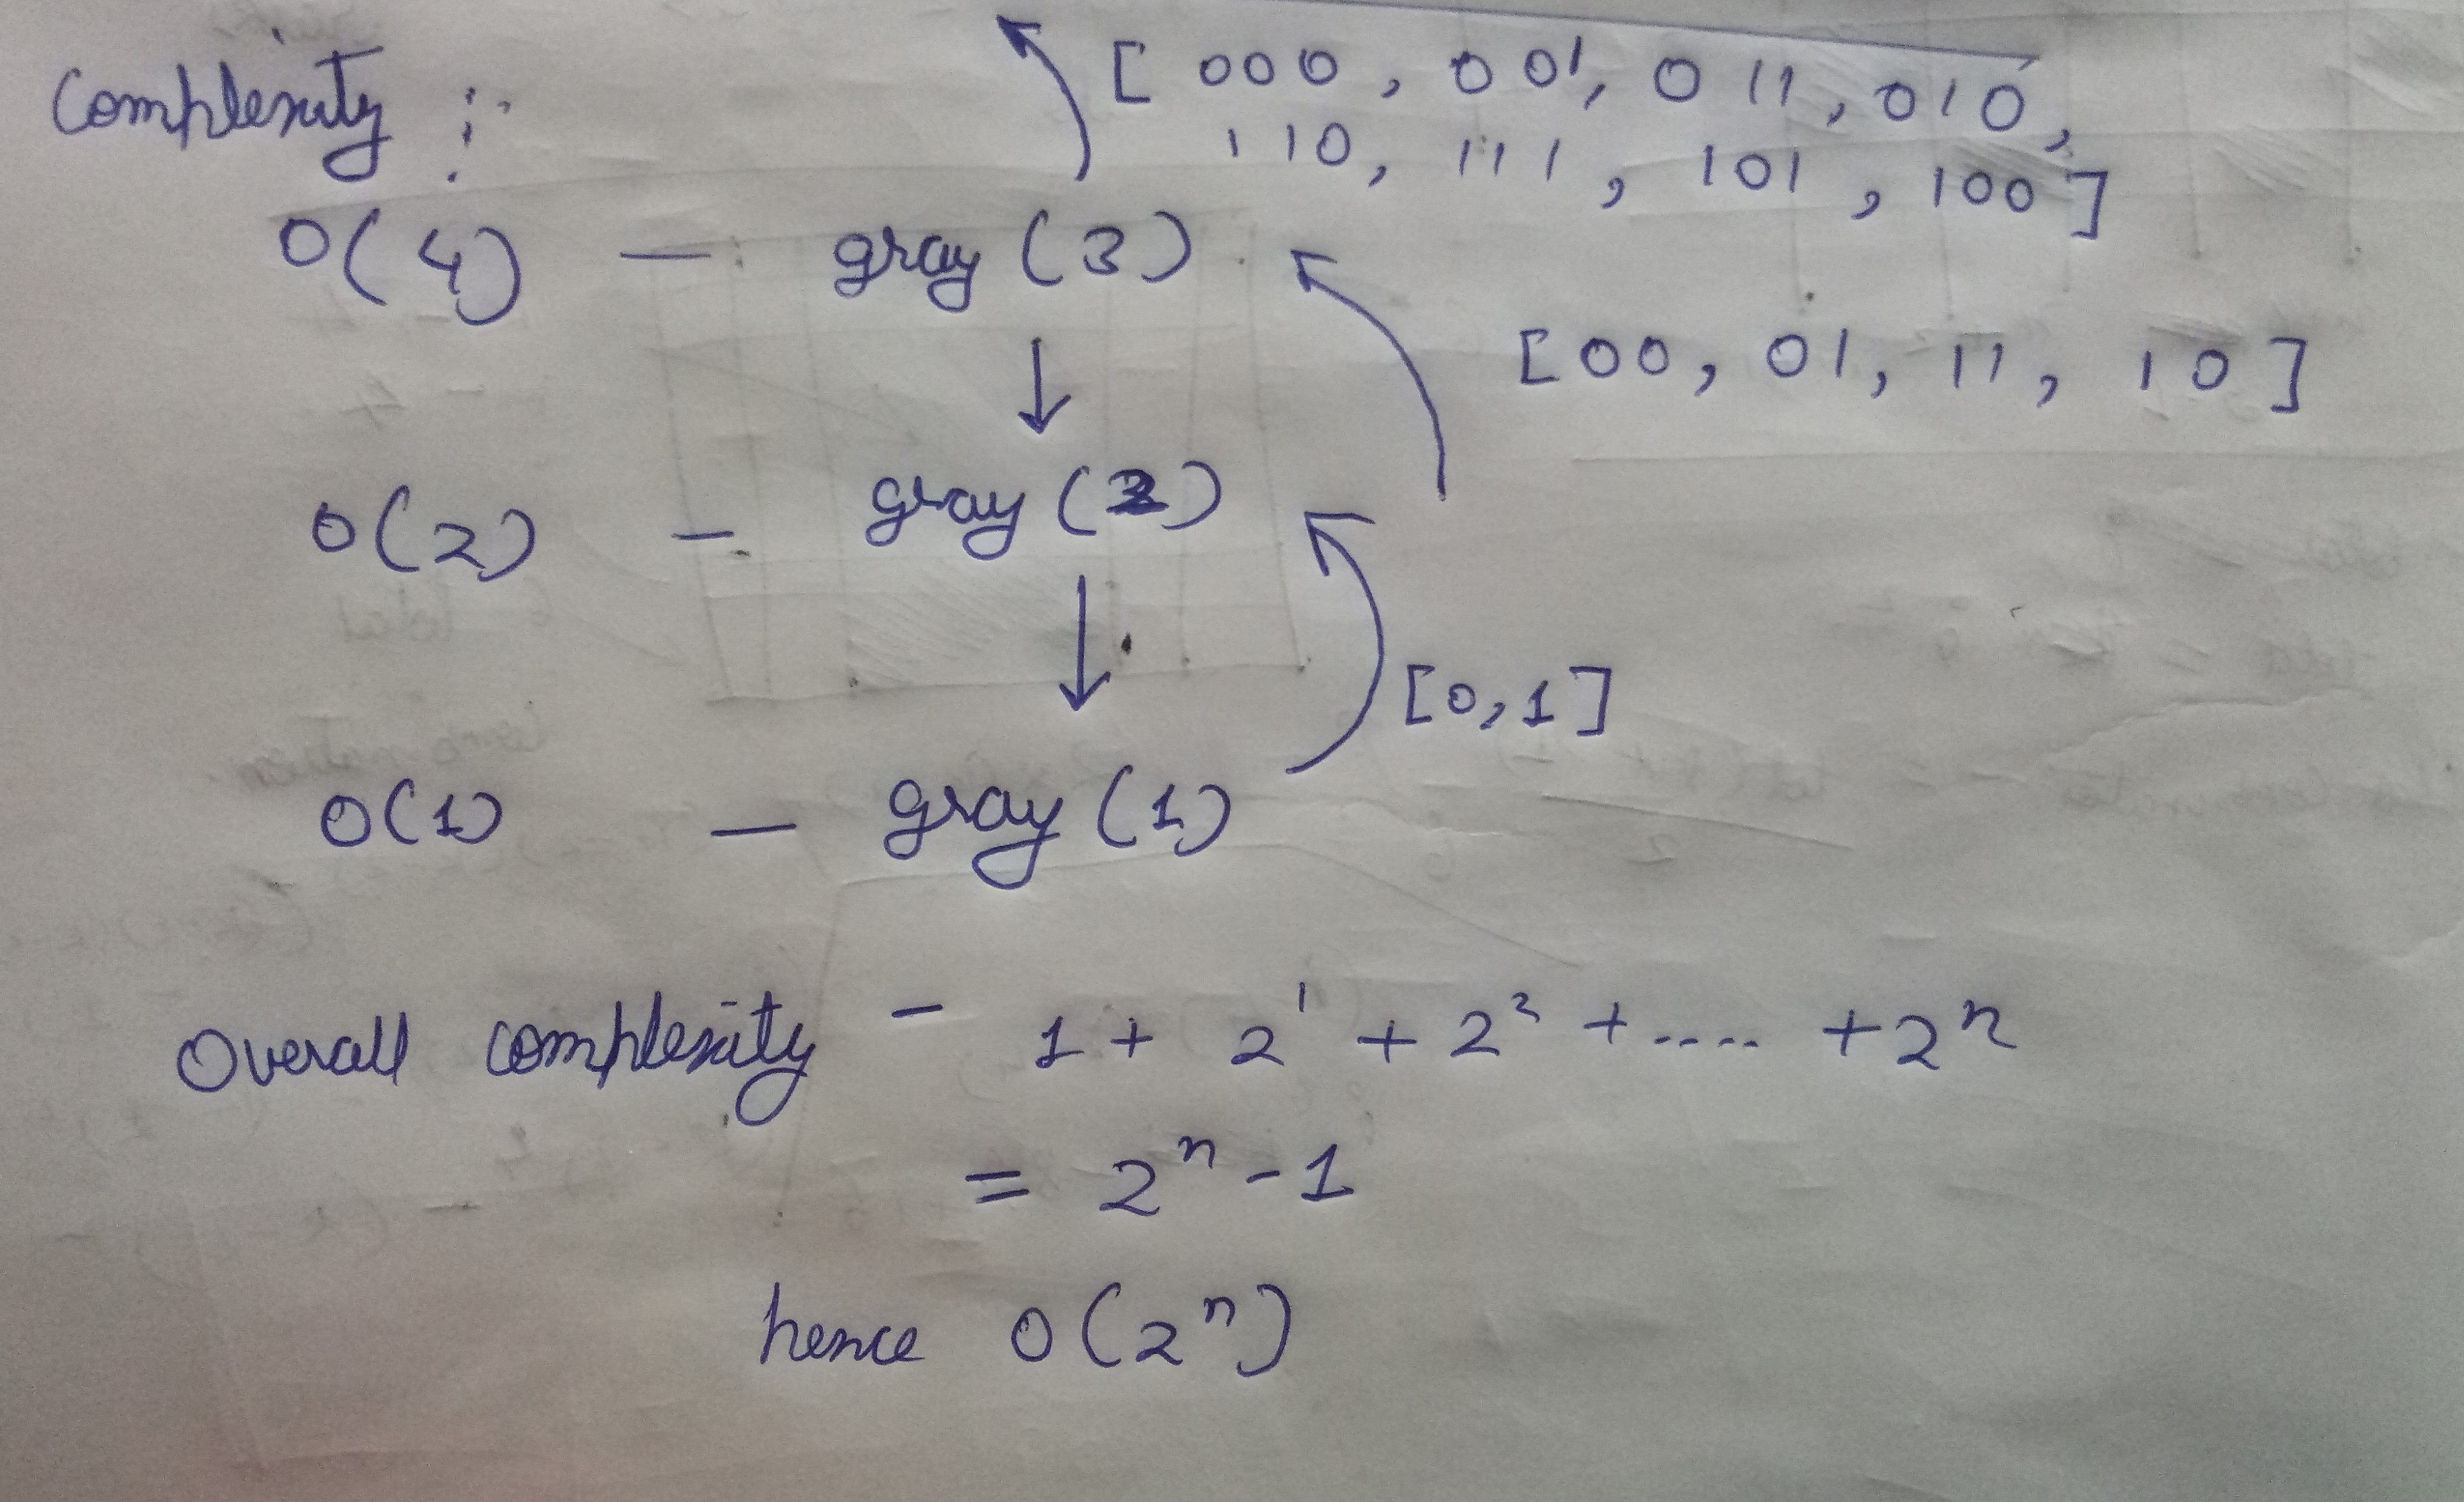 Complexity :-
[ 000, 001, 011, 010,
110, 111, 101, 100 ]
O(4) — gray (3)
[00, 01, 11, 10]
O(2) — gray (2)
[0,1]
O(1) — gray (1)
Overall complexity - 1 + 2¹ + 2² + .... + 2ⁿ
= 2ⁿ - 1
hence O(2ⁿ)